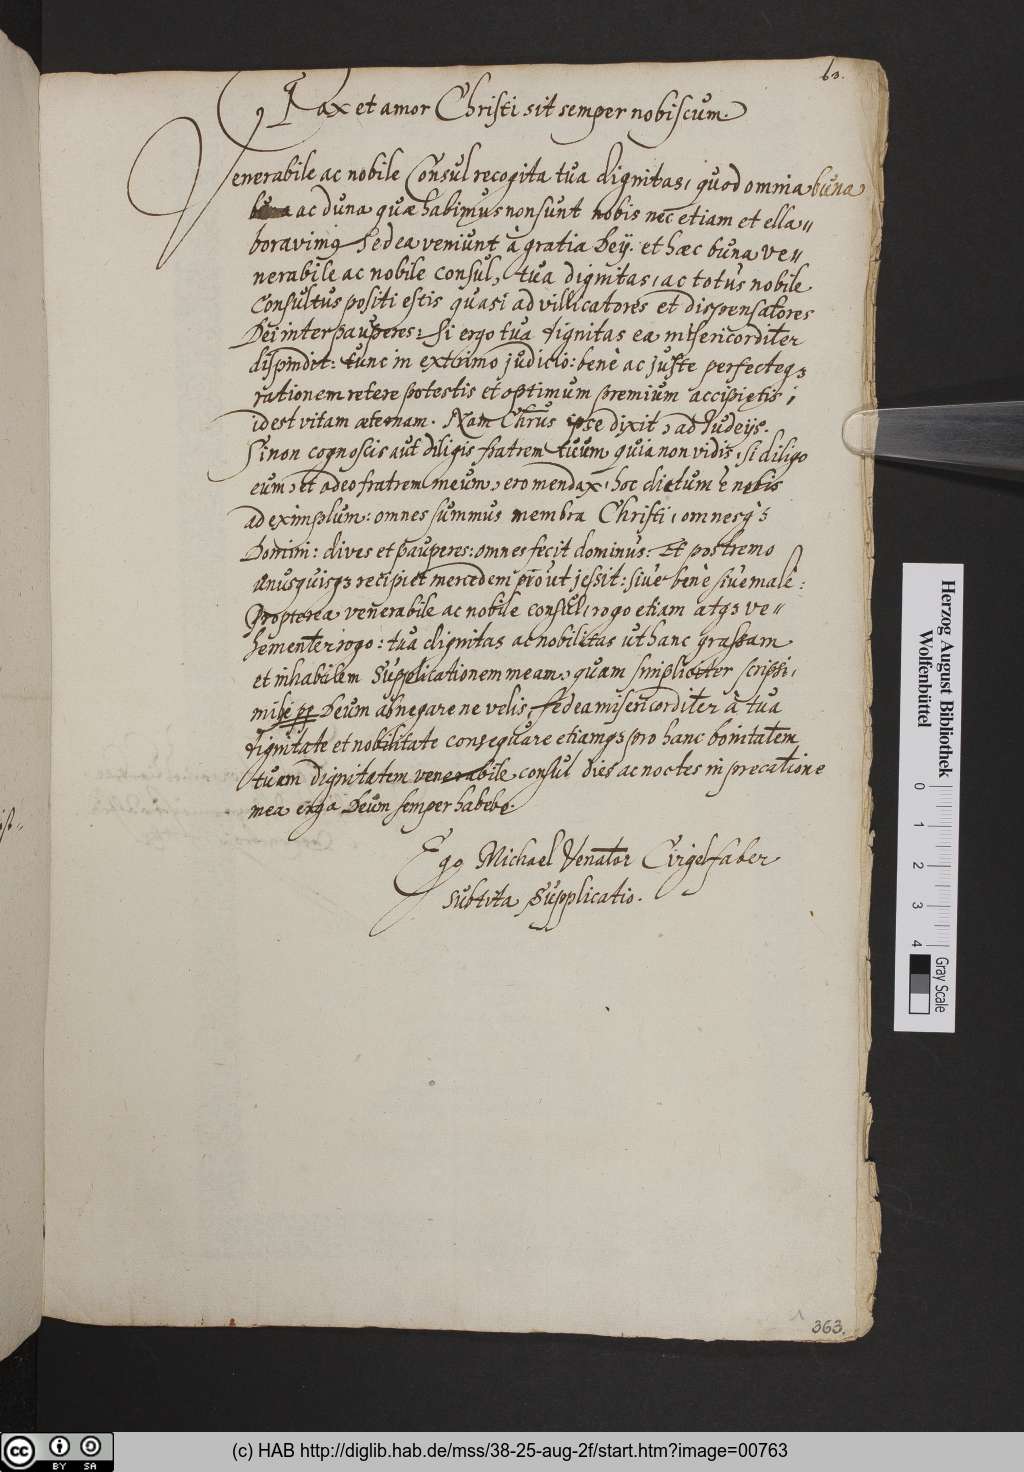 63.
Pax et amor Christi sit semper nobiscum.
Venerabile ac nobile Consul recogita tua dignitas, quod omnia buna
ac duna quæ habimus non sunt nobis nec etiam et ella„
boravimq Sed ea veniunt à gratia Deÿ. et hæc buna ve„
nerabile ac nobile consul, tua dignitas, ac totus nobile
Consultus positi estis quasi ad villicatores et dispensatores
Dei inter pauperes: Si ergo tua dignitas ea misericorditer
dispindit: tunc in extrimo judicio: benè ac juste perfecteqȝ
rationem retere potestis et optimum premium accipietis,
id est vitam æternam. Nam Chrus ipse dixit, ad Judeijs.
Si non cognoscis aut diligis fratrem tuum quia non vidis, si diligo
eum, et odeo fratrem meum, ero mendax, hoc dictum è nobis
ad eximplum: omnes summus membra Christi, omnesqȝ
Domini: dives et pauperes: omnes fecit dominus: Et postremo
unusquisqȝ recipiet mercedem prout jessit: sive benè sive malè:
Propterea venerabile ac nobile consul, rogo etiam atqȝ ve„
hementer rogo: tua dignitas ac nobilitas ut hanc grassam
et inhabilem Supplicationem meam, quam simpliciter scripsi,
mihi Deum abnegare ne velis, sed ea misericorditer à tua
dignitate et nobilitate consequare etiamqȝ pro hanc bonitatem
tuam dignitatem venerabile consul dies ac noctes in precatione
mea erga Deum semper habebo.
Ego Michael Venator Cirgelfaber
subtita Supplicatio.
363.
Herzog August Bibliothek
Wolfenbüttel
0 1 2 3 4
Gray Scale
cc BY SA
(c) HAB http://diglib.hab.de/mss/38-25-aug-2f/start.htm?image=00763